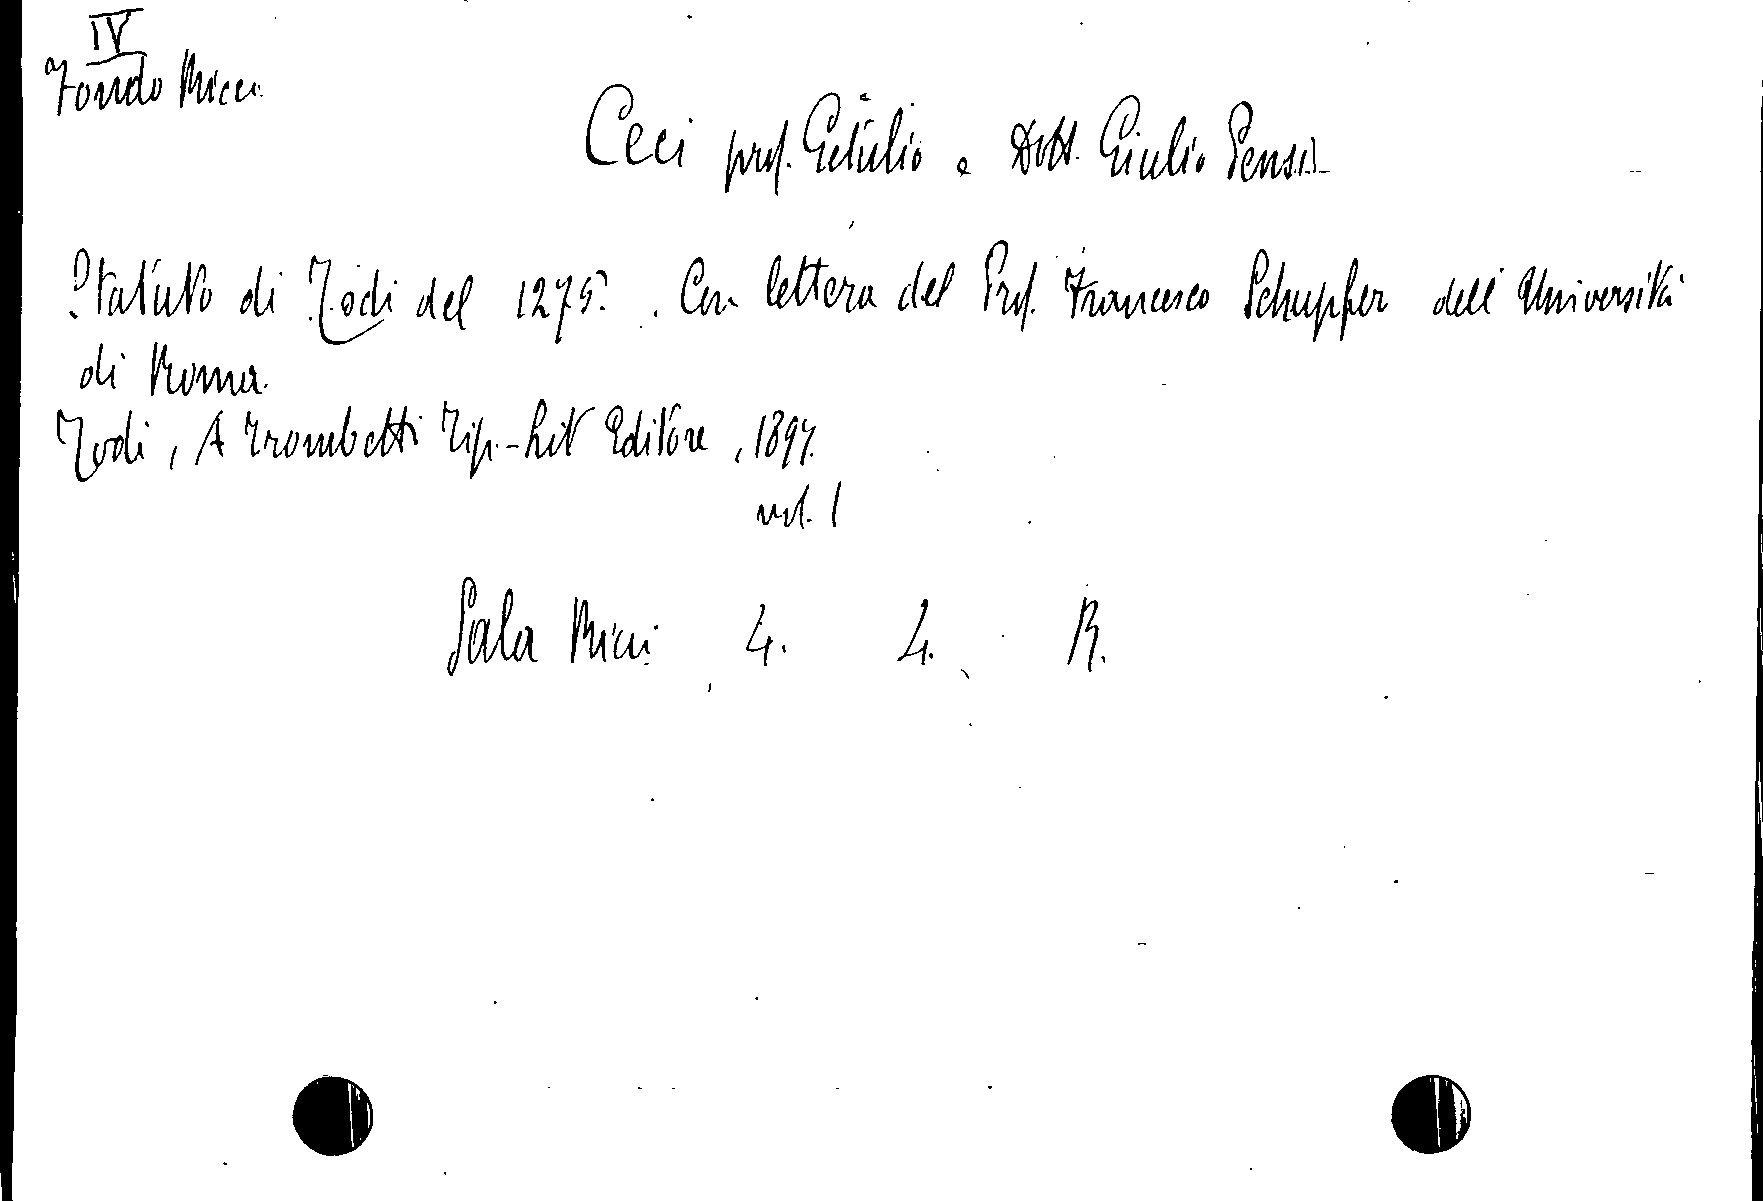 IV
Fondo Ricci
Ceci prof. Getulio e Dott. Giulio Pensi
Statuto di Todi del 1275. Con lettera del Prof. Francesco Schupfer dell' Università
di Roma.
Todi, A Trombetti Tip.-Lit Editore, 1897.
vol. 1
Sala Ricci 4. 4. R.